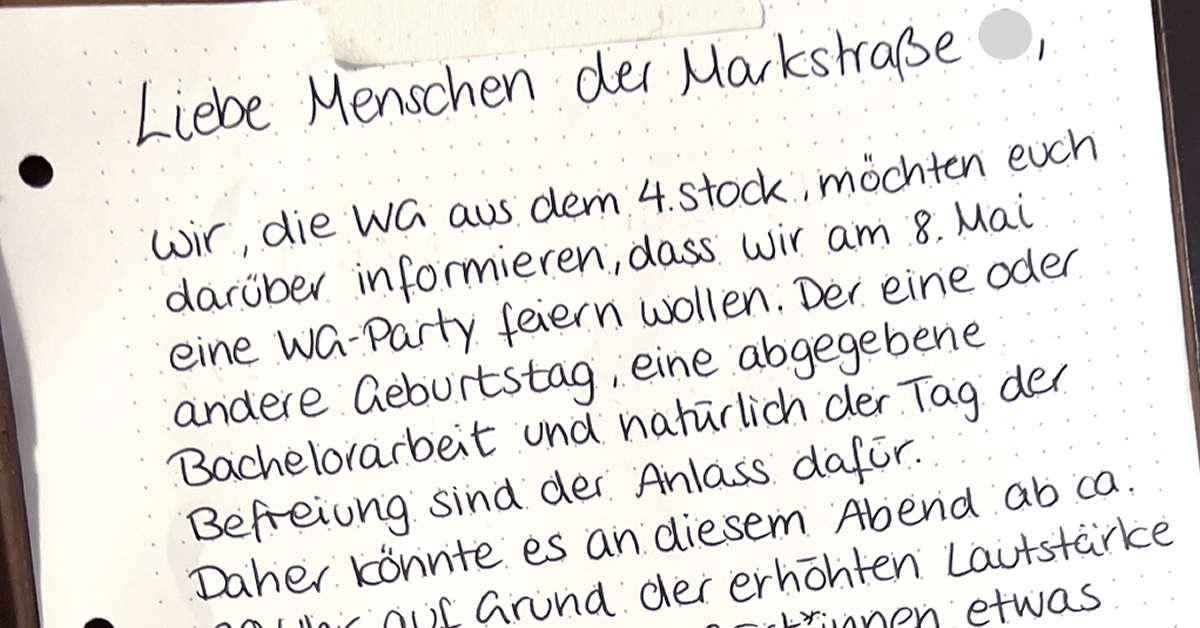 Liebe Menschen der Markstraße ,
wir, die WG aus dem 4. Stock, möchten euch
darüber informieren, dass wir am 8. Mai
eine WG-Party feiern wollen. Der eine oder
andere Geburtstag, eine abgegebene
Bachelorarbeit und natürlich der Tag der
Befreiung sind der Anlass dafür.
Daher könnte es an diesem Abend ab ca.
auf Grund der erhöhten Lautstärke
etwas